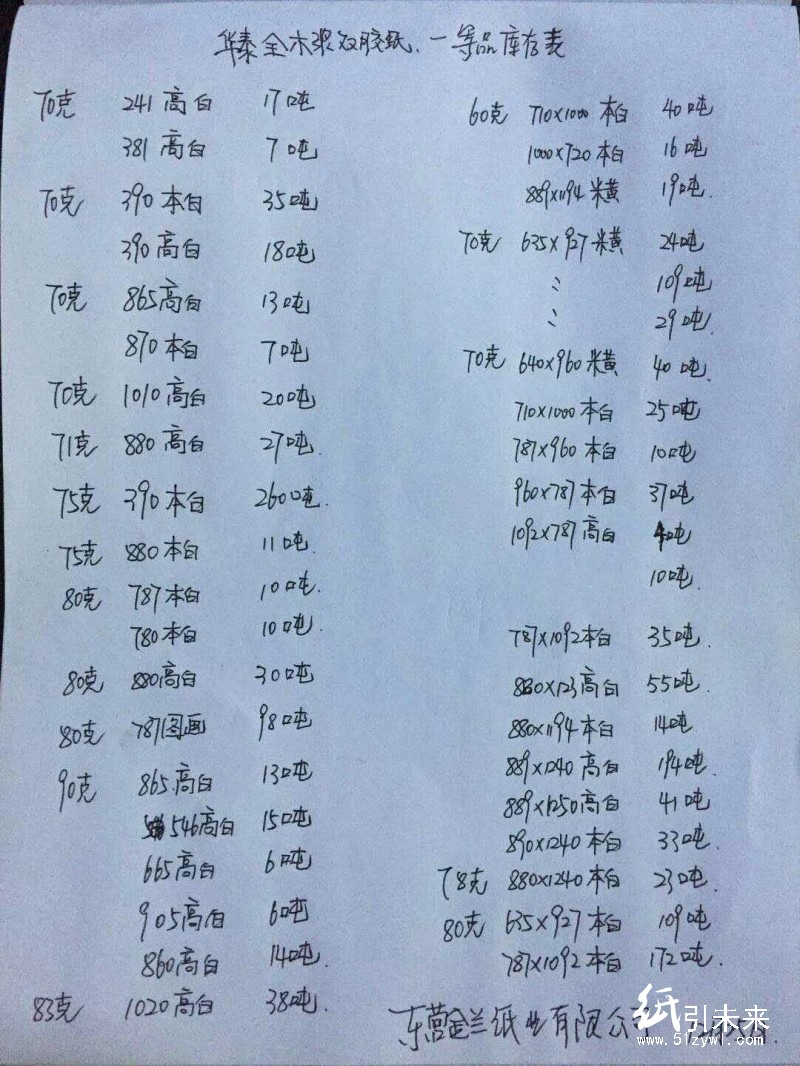 华泰全木浆双胶纸、一等品库存表
70克 241高白 17吨
381高白 7吨
70克 390本白 35吨
390高白 18吨
70克 865高白 13吨
870本白 7吨
70克 1010高白 20吨
71克 880高白 27吨.
75克 390本白 260吨.
75克 880本白 11吨.
80克 787本白 10吨.
780本白 10吨.
80克 880高白 30吨.
80克 787图画 98吨
90克 865高白 13吨
546高白 15吨
665高白 6吨
905高白 6吨
860高白 14吨.
83克 1020高白 38吨.
60克 710×1000本白 40吨
1000×720本白 16吨
889×1194米黄 19吨.
70克 635×927米黄 24吨
〃 109吨
〃 29吨.
70克 640×960米黄 40吨.
710×1000本白 25吨
787×960本白 10吨
960×787本白 37吨
1092×787高白 4吨
10吨.
787×1092本白 35吨.
880×123高白 55吨.
880×1194本白 14吨
889×1240高白 194吨.
889×1250高白 41吨
890×1240本白 33吨
78克 880×1240本白 23吨.
80克 635×927本白 109吨
787×1092本白 172吨.
东营金兰纸业有限公司
纸引未来
www.51zywl.com